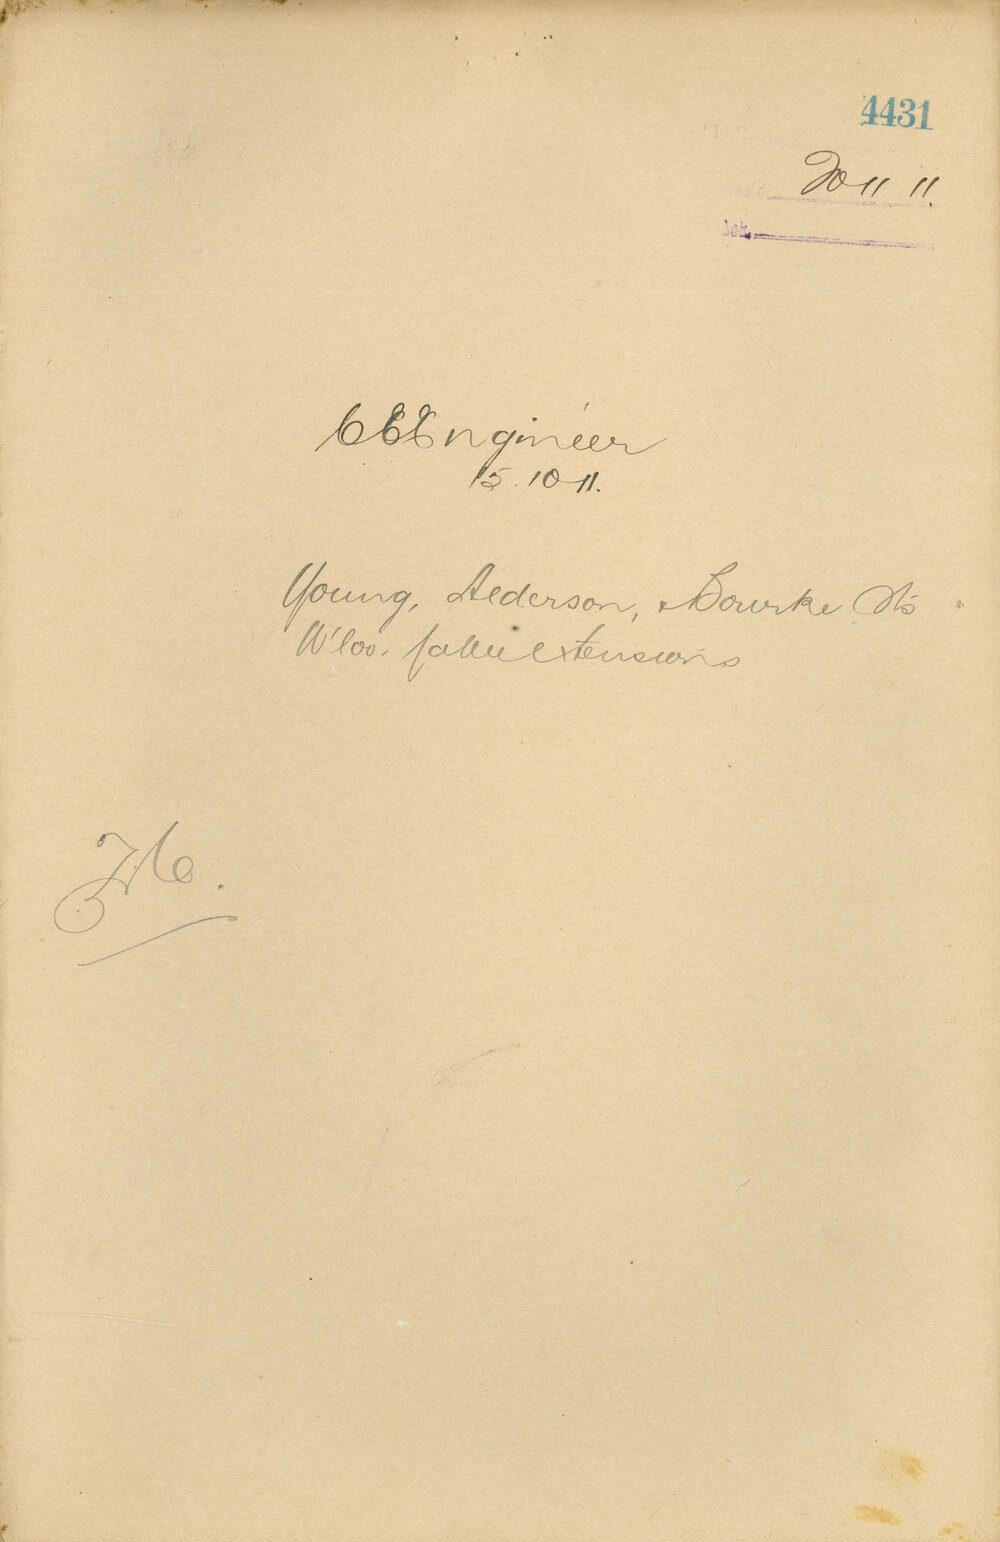 4431
Rec'd 20 11 11.
Ack.
C E Engineer
15.10 11.
Young, Alderson, & Bourke Sts
W'loo. Cable extensions